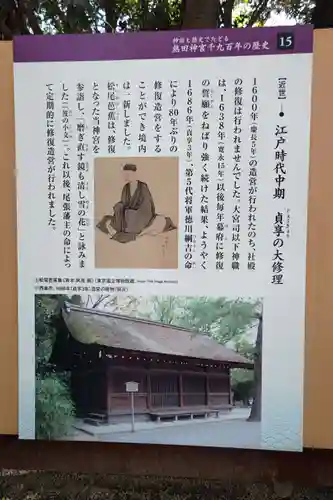 神話と歴史でたどる
熱田神宮千九百年の歴史
15
【近世】
江戸時代中期 貞享の大修理
1600年(慶長5年)の造営が行われたのち、社殿
の修復は行われませんでした。大宮司以下神職
は、1638年(寛永15年)以後毎年幕府に修復
の誓願をねばり強く続けた結果、ようやく
1686年(貞享3年)、第5代将軍徳川綱吉の命
により80年ぶりの
修復造営をする
ことができ境内
は一新しました。
松尾芭蕉は、修復
となった当神宮を
参詣し、「磨ぎ直す鏡も清し雪の花」と詠みま
した(「笈の小文」)。これ以後、尾張藩主の命によっ
て定期的に修復造営が行われました。